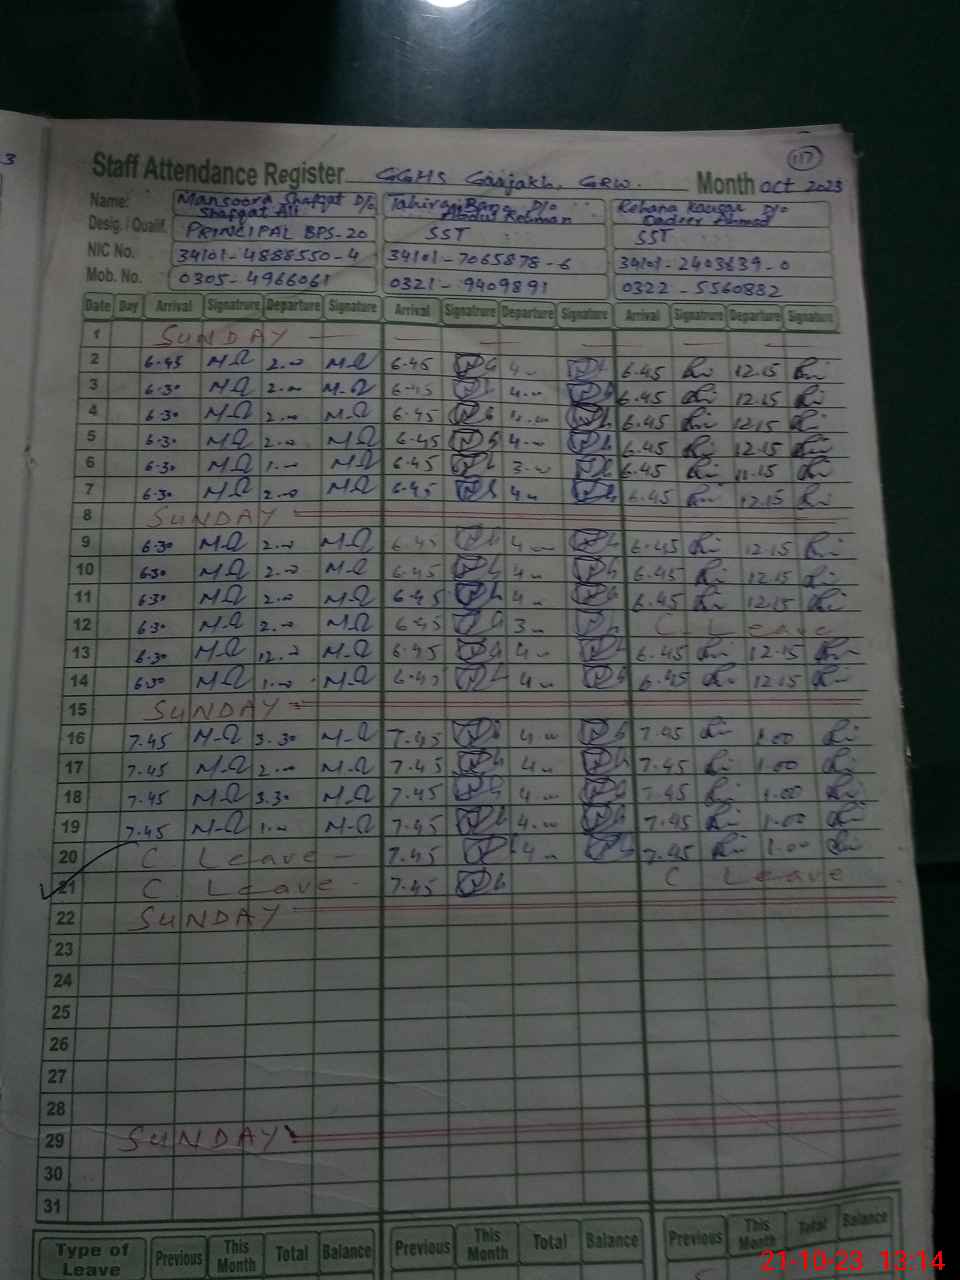 3
117
Staff Attendance Register GGHS Gaajakh, GRW. Month Oct 2023
Name: Mansoora Shafqat D/o Shafqat Ali Tahira Bano D/o Abdul Rehman Rehana Kausar D/o Ahmad
Desig. / Qualif. PRINCIPAL BPS-20 SST SST
NIC No. 34101-4888550-4 34101-7065878-6 34101-2403839-0
Mob. No. 0305-4966061 0321-9409891 0322-5560882
Date Day Arrival Signatrure Departure Signature Arrival Signatrure Departure Signature Arrival Signatrure Departure Signature
1 SUNDAY
2 6.45 2.00 6.45 4.00 6.45 12.15
3 6.30 2.00 6.45 4.00 6.45 12.15
4 6.30 2.00 6.45 4.00 6.45 12.15
5 6.30 2.00 6.45 4.00 6.45 12.15
6 6.30 1.00 6.45 3.00 6.45 11.15
7 6.30 2.00 6.45 4.00 6.45 12.15
8 SUNDAY
9 6.30 2.00 6.45 4.00 6.45 12.15
10 6.30 2.00 6.45 4.00 6.45 12.15
11 6.30 2.00 6.45 4.00 6.45 12.15
12 6.30 2.00 6.45 3.00 C. Leave
13 6.30 12.00 6.45 4.00 6.45 12.15
14 6.30 1.00 6.45 4.00 6.45 12.15
15 SUNDAY
16 7.45 3.30 7.45 4.00 7.45 1.00
17 7.45 2.00 7.45 4.00 7.45 1.00
18 7.45 3.30 7.45 4.00 7.45 1.00
19 7.45 1.00 7.45 4.00 7.45 1.00
20 C Leave 7.45 4.00 7.45 1.00
21 C Leave 7.45 C Leave
22 SUNDAY
23
24
25
26
27
28
29 SUNDAY
30
31
Type of Leave Previous This Month Total Balance Previous This Month Total Balance Previous This Month Total Balance
21-10-23 13:14